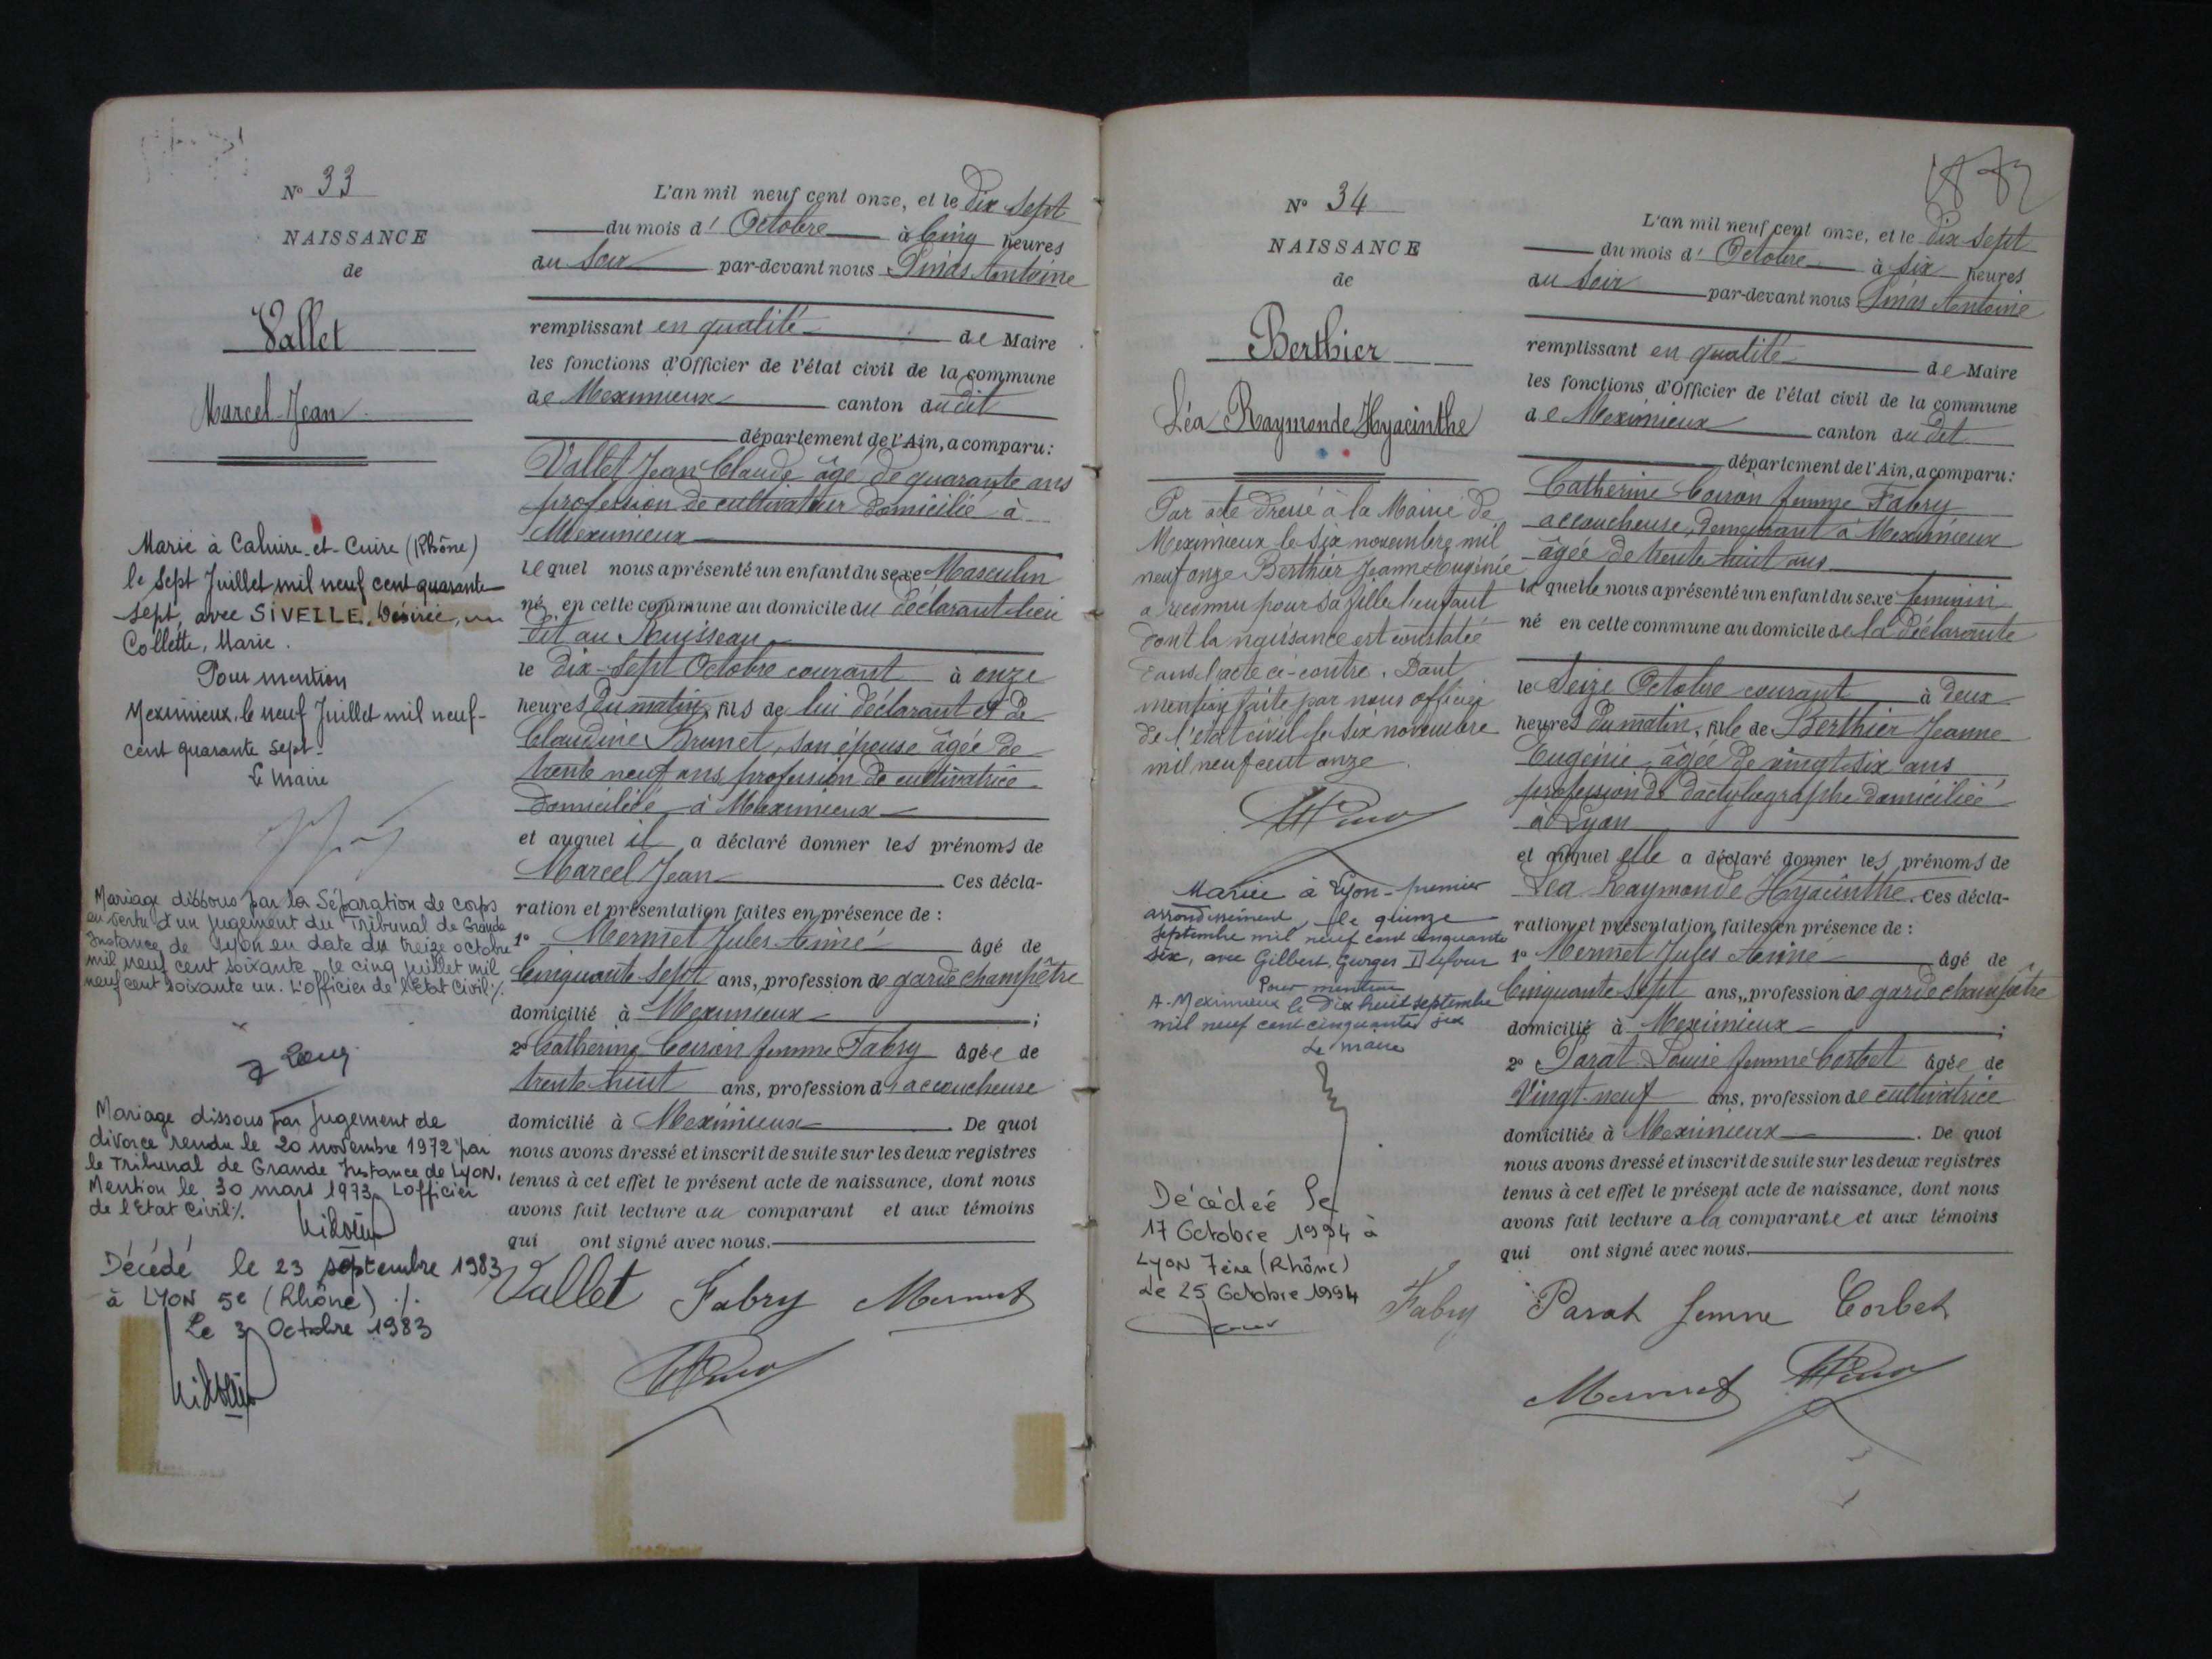 N° 33
NAISSANCE
de
Vallet
Marcel Jean
Marié à Caluire-et-Cuire (Rhône)
le sept Juillet mil neuf cent quarante
sept, avec SIVELLE, Désirée,
Collette, Marie.
Pour mention
Meximieux, le neuf Juillet mil neuf-
cent quarante sept.
Le Maire
Mariage dissous par la Séparation de corps
en vertu d'un jugement du Tribunal de Grande
Instance de Lyon en date du treize octobre
mil neuf cent soixante, le cinq juillet mil
neuf cent soixante un. L'officier de l'Etat Civil ./.
Mariage dissous par jugement de
divorce rendu le 20 novembre 1972 par
le Tribunal de Grande Instance de Lyon.
Mention le 30 mars 1973. L'officier
de l'Etat Civil ./.
Décédé le 23 septembre 1983
à LYON 5e (Rhône) ./.
Le 3 Octobre 1983
L'an mil neuf cent onze, et le dix sept
du mois d' Octobre à Cinq heures
du Soir par-devant nous Antoine
remplissant en qualité de Maire
les fonctions d'Officier de l'état civil de la commune
de Meximieux canton dudit
département de l'Ain, a comparu:
Vallet Jean Claude âgé de quarante ans
profession de cultivateur domicilié à
Meximieux
Lequel nous a présenté un enfant du sexe Masculin
né en cette commune au domicile du déclarant lieu
dit au Ruisseau
le dix-sept Octobre courant à onze
heures du matin, fils de lui déclarant et de
Claudine Brunet, son épouse âgée de
trente neuf ans profession de cultivatrice
domiciliée à Meximieux
et auquel il a déclaré donner les prénoms de
Marcel Jean Ces décla-
ration et présentation faites en présence de :
1° Mermet Jules Aimé âgé de
Cinquante-sept ans, profession de garde champêtre
domicilié à Meximieux ;
2° Catherine Coiron femme Fabry âgée de
trente huit ans, profession d'accoucheuse
domicilié à Meximieux. De quoi
nous avons dressé et inscrit de suite sur les deux registres
tenus à cet effet le présent acte de naissance, dont nous
avons fait lecture au comparant et aux témoins
qui ont signé avec nous.
Vallet Fabry Mermet
N° 34
NAISSANCE
de
Berthier
Léa Raymonde Hyacinthe
Par acte dressé à la Mairie de
Meximieux le six novembre mil
neuf onze Berthier Jeanne Eugénie
a reconnu pour sa fille l'enfant
dont la naissance est constatée
dans l'acte ci-contre. Dont
mention faite par nous officier
de l'état civil le six novembre
mil neuf cent onze.
Mariée à Lyon-premier
arrondissement, le quinze
septembre mil neuf cent cinquante
six, avec Gilbert, Georges
Pour mention
A Meximieux le dix huit septembre
mil neuf cent cinquante six
Le maire
Décédée le
17 Octobre 1994 à
LYON 7ème (Rhône)
Le 25 Octobre 1994
L'an mil neuf cent onze, et le dix sept
du mois d' Octobre à six heures
du Soir par-devant nous Antoine
remplissant en qualité de Maire
les fonctions d'Officier de l'état civil de la commune
de Meximieux canton dudit
département de l'Ain, a comparu:
Catherine Coiron femme Fabry
accoucheuse, demeurant à Meximieux
âgée de trente huit ans
Laquelle nous a présenté un enfant du sexe féminin
né en cette commune au domicile de la déclarante
le Seize Octobre courant à deux
heures du matin, fille de Berthier Jeanne
Eugénie âgée de vingt-six ans
profession de dactylographe domiciliée
à Lyon
et auquel elle a déclaré donner les prénoms de
Léa Raymonde Hyacinthe. Ces décla-
ration et présentation faites en présence de :
1° Mermet Jules Aimé âgé de
Cinquante-sept ans, profession de garde champêtre
domicilié à Meximieux ;
2° Parat Louise femme Corbet âgée de
Vingt-neuf ans, profession de cultivatrice
domiciliée à Meximieux. De quoi
nous avons dressé et inscrit de suite sur les deux registres
tenus à cet effet le présent acte de naissance, dont nous
avons fait lecture a la comparante et aux témoins
qui ont signé avec nous.
Fabry Parat femme Corbet
Mermet